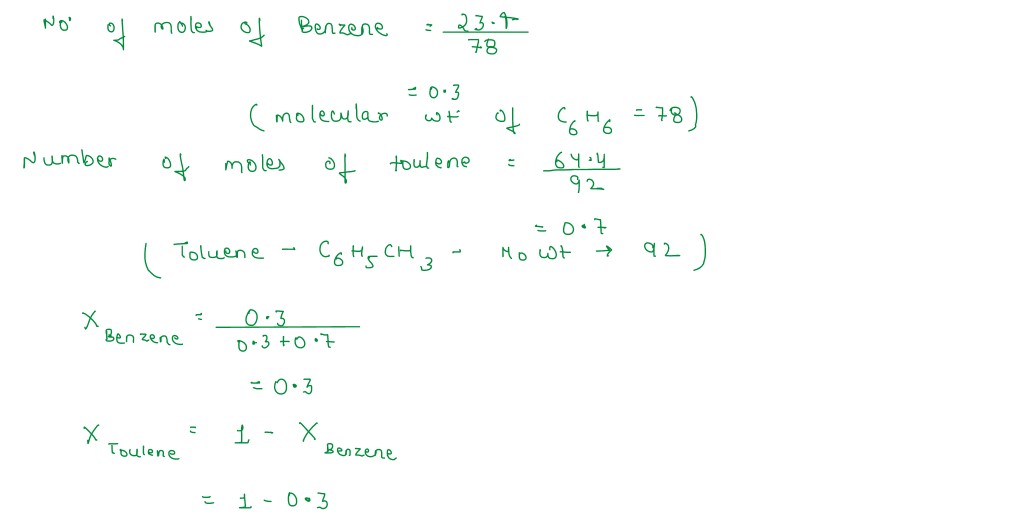 No. of moles of Benzene = 23.4 / 78
= 0.3
(molecular wt of C6H6 = 78)
Number of moles of toulene = 64.4 / 92
= 0.7
(Toluene - C6H5CH3 - Mo wt → 92)
X Benzene = 0.3 / 0.3+0.7
= 0.3
X Toulene = 1 - X Benzene
= 1 - 0.3